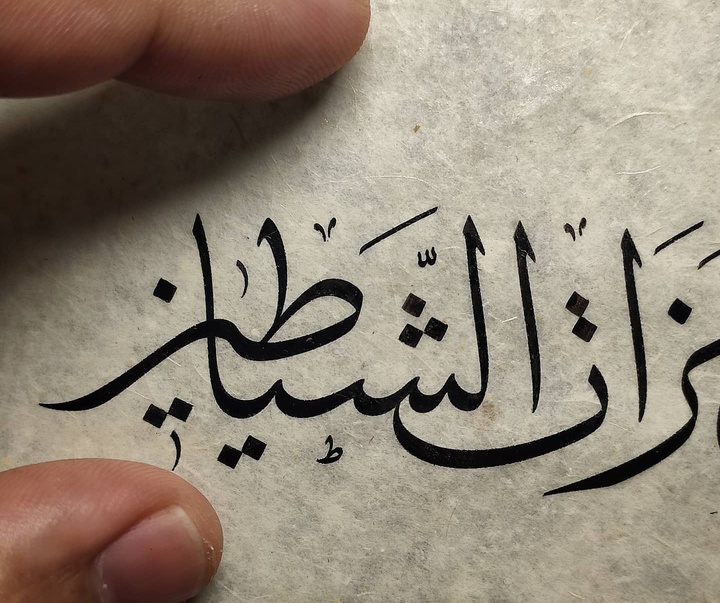 زَات الشَّيَاطِين